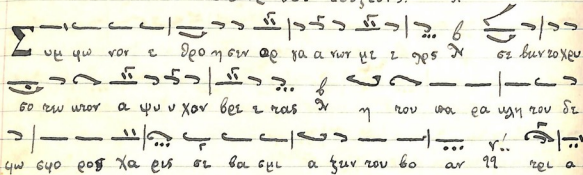 Συμ φω νον ε θρο η σεν ορ γα α νων με ε λος σε βειν το χρυ
σο τευ κτον α ψυ υ χον βρε ε τας η του πα ρα κλη του δε
φω σφο ρος χα ρις σε βα σμι α ζειν του βο αν τρι α